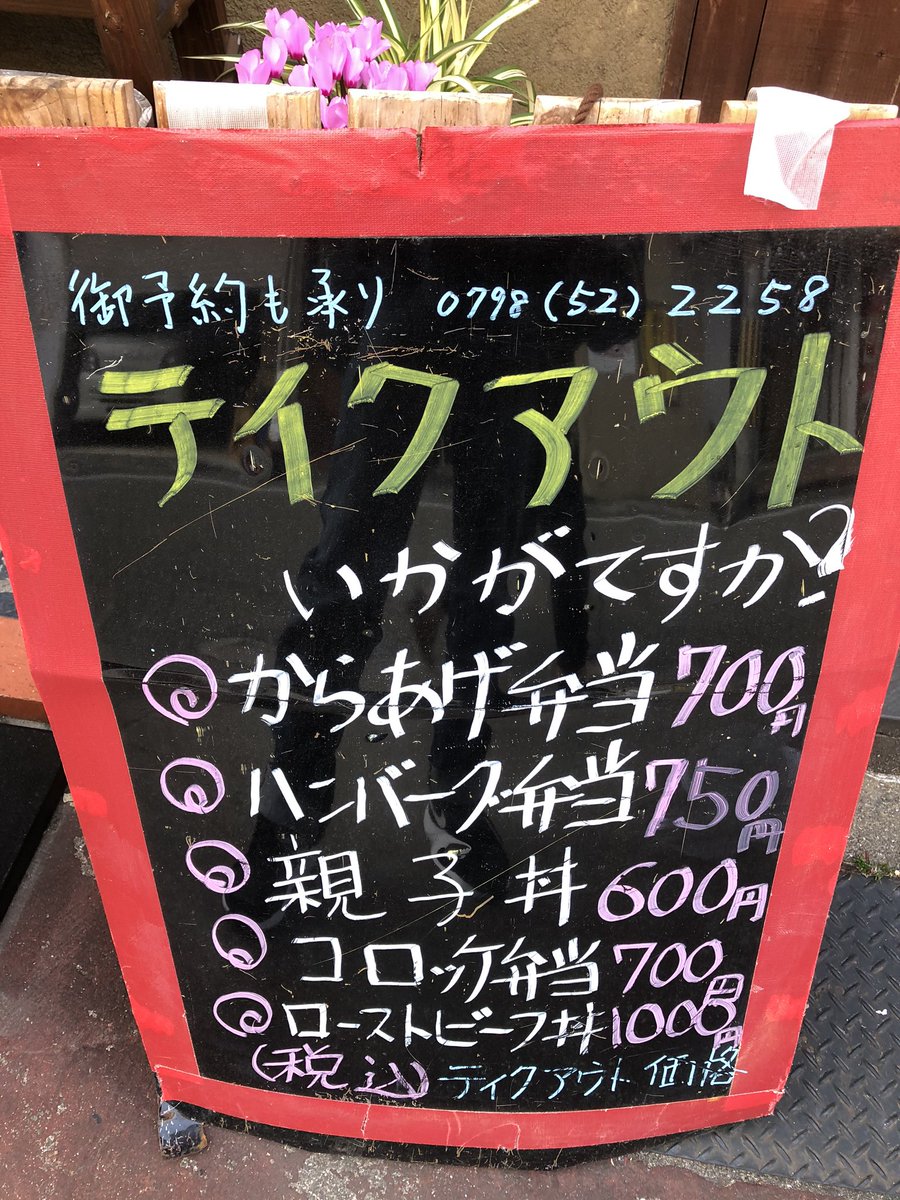 御予約も承り 0798(52)2258
テイクアウト
いかがですか?
からあげ弁当 700円
ハンバーグ弁当 750円
親子丼 600円
コロッケ弁当 700円
ローストビーフ丼 1000円
(税込) テイクアウト価格